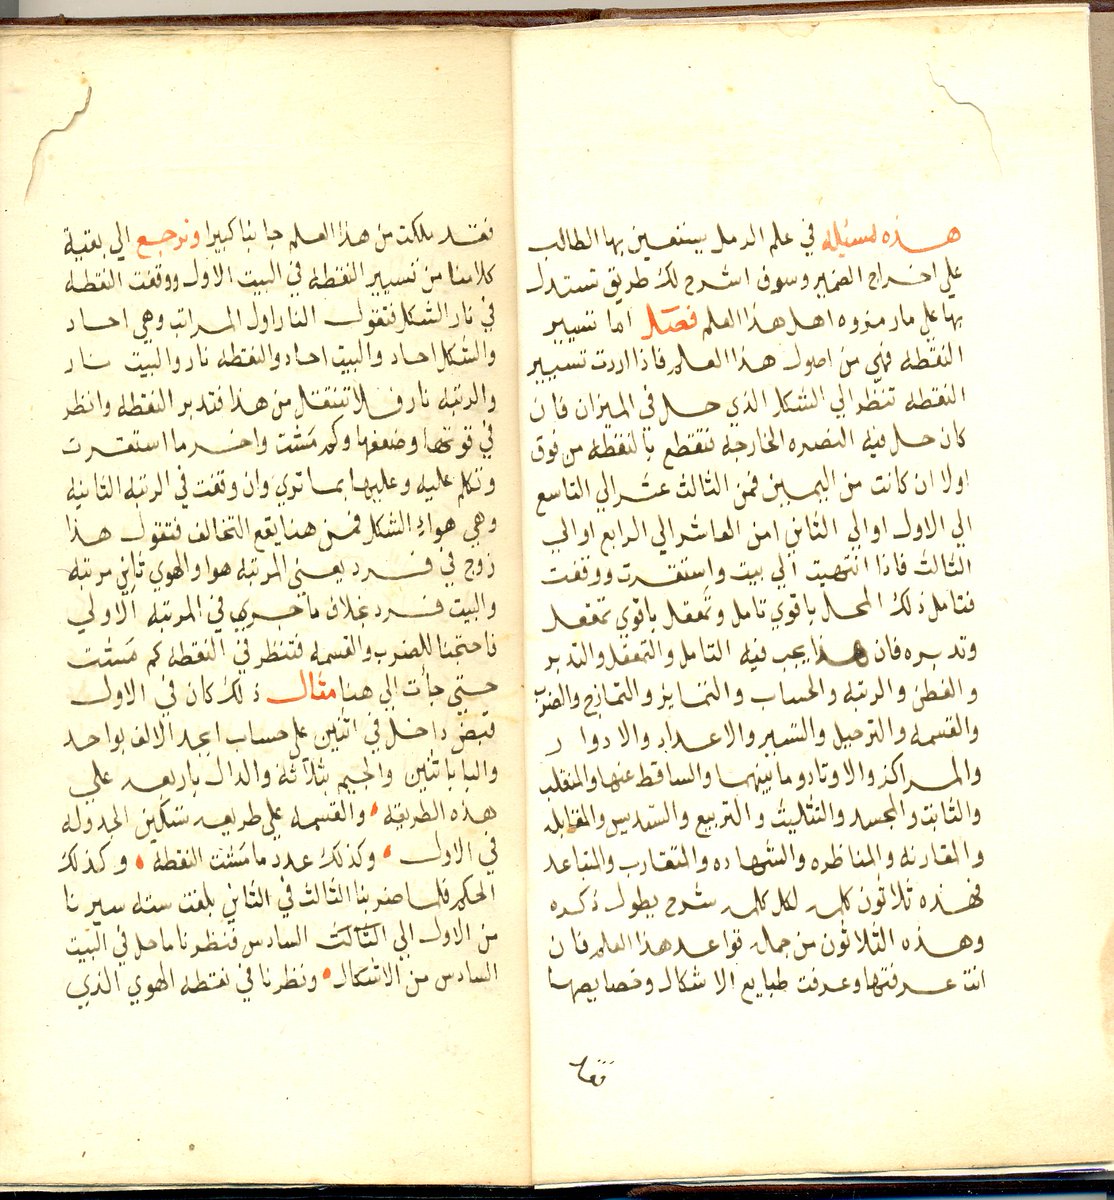 هذه لمسئله في علم الرمل يستعين بها الطالب
علي اخراج الضمير وسوف اشرح لك طريق تستدل
بها علي مارمزوه اهل هذا العلم فصل اما تسيير
النقطه فهي من اصول هذا العلم فاذا اردت تسيير
النقطه تنظر الي الشكل الذي حل في الميزان فان
كان حل فيه النصره الخارجه فتقطع بالنقطه من فوق
اولا ان كانت من اليمين فمن الثالث عشر الي التاسع
الي الاول او الي الثاني امن العاشر الي الرابع او الي
الثالث فاذا انتهيت الي بيت واستقرت ووقفت
فتامل ذلك المحل باقوي تامل وتمعقل باقوي تمعقل
وتدبره فان هذا يجب فيه التامل والتمعقل والتدبر
والفطن والرتبه والحساب والتمايز والتمازج والضرب
والقسمه والترحيل والتسيير والاعداد والادوار
والمراكز والاوتاد وما بينهما والساقط عنها والمنقلب
والثابت والمجسد والتثليث والتربيع والتسديس والمقابله
والمقارنه والمناظره والشهاده والتقارب والتباعد
فهذه ثلاثون كلمه لكل كلمه شرح يطول ذكره
وهذه الثلاثون من جملة قواعد هذا العلم فان
انت عرفتها وعرفت طبايع الاشكال وخصايصها
فقد
فقد ملكت من هذا العلم جانبا كبيرا ونرجع الي بقية
كلامنا من تسيير النقطه في البيت الاول ووقفت النقطه
في نار الشكل فتقول النار اول المراتب وهي احاد
والشكل احاد والبيت احاد والنقطه نار والبيت نار
والرتبه نار فلا تنتقل من هذا فتدبر النقطه وانظر
في قوتها وضعفها وكم مشت واخر ما استقرت
وتكلم عليه وعليها بما تري وان وقفت في الرتبه الثانيه
وهي هواء الشكل فمن هنا يقع التخالف فتقول هذا
زوج في فرد يعني المرتبه هوا والهوي ثاني مرتبه
والبيت فرد بخلاف ما جري في المرتبه الاولي
فاحتجنا للضرب والقسمه فتنظر في النقطه كم مشت
حتي جأت الي هنا مثال ذلك كان في الاول
قبض داخل في اثنين علي حساب ابجد الالف بواحد
والبا باثنين والجيم بثلاثه والدال باربعه علي
هذه الطريقه والقسمه علي طريقه تسكين الجدوله
في الاول وكذلك عدد ما مشت النقطه وكذلك
الحكم فلما ضربنا الثالث في الثاني بلغت سته سيرنا
من الاول الي الثالث السادس فنظرنا ما حل في البيت
السادس من الاشكال ونظرنا في نقطه الهوي الذي